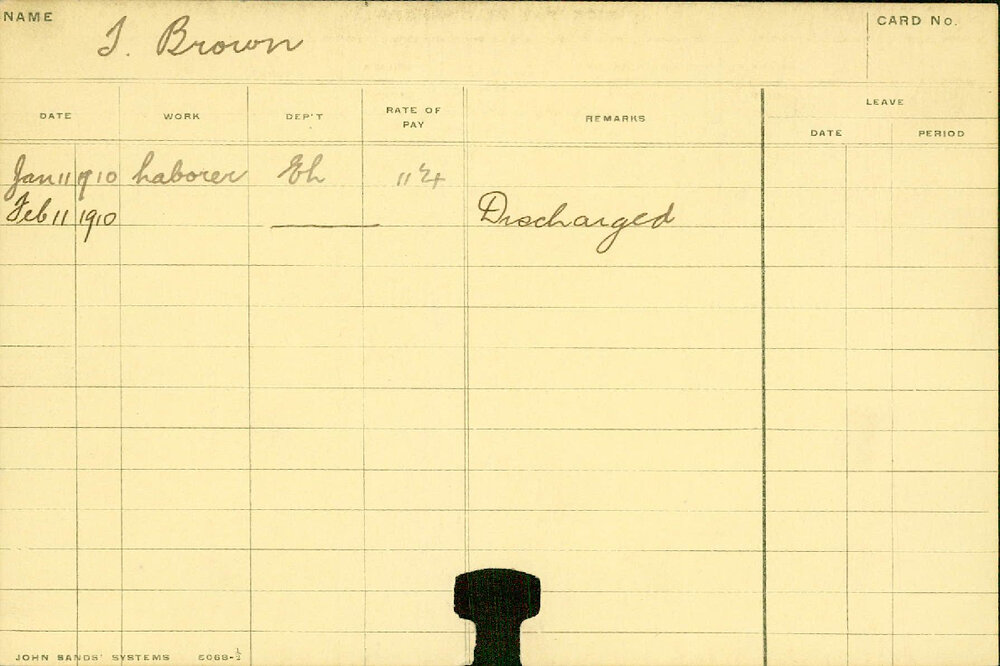 NAME
J. Brown
CARD No.
DATE WORK DEP'T RATE OF PAY REMARKS LEAVE
DATE PERIOD
Jan 11 1910 Laborer Eh
Feb 11 1910 Discharged
JOHN SANDS' SYSTEMS 5068-½